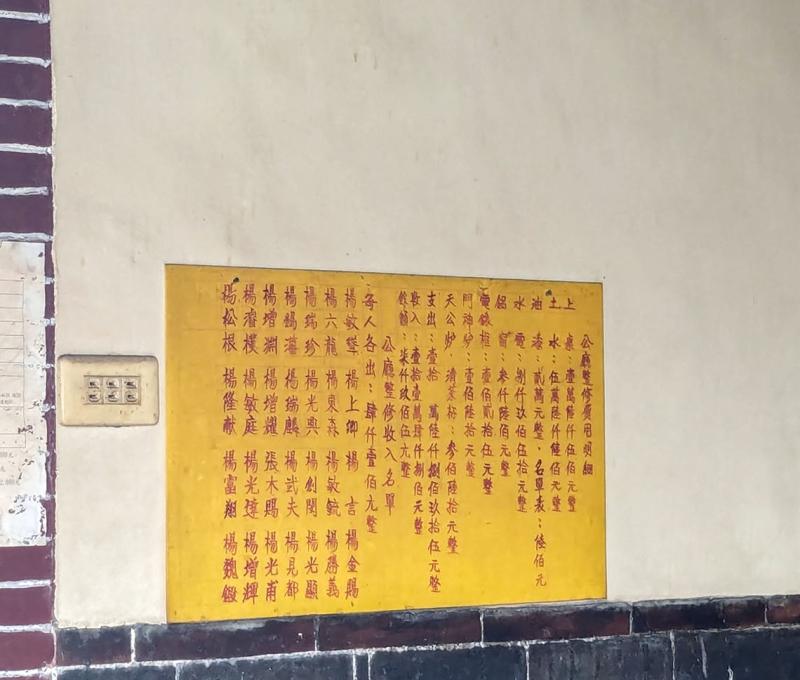 公廳整修費用明細
上　：壹萬陸仟伍佰元整
土　水：伍萬陸仟陸佰元整
油　漆：貳萬元整、名單表：陸佰元
水　電：捌仟玖佰伍拾元整
鋁　窗：參仟陸佰元整
電錶框：壹佰貳拾伍元整
門神炉：壹佰陸拾元整
天公炉、清茶杯：參佰陸拾元整
支出：壹拾　萬陸仟捌佰玖拾伍元整
收入：壹拾壹萬肆仟捌佰元整
餘額：柒仟玖佰伍元整
公廳整修收入名單
每人各出：肆仟壹佰元整
楊上卿 楊　言 楊金賜
楊六龍 楊東森 楊敏毓 楊勝義
楊瑞珍 楊光興 楊創閔 楊光顯
楊錫藩 楊瑞麟 楊武夫 楊見都
楊增淵 楊增耀 張木賜 楊光甫
楊濬樸 楊敏庭 楊光博 楊增輝
楊松根 楊隆献 楊富翔 楊魏鍛